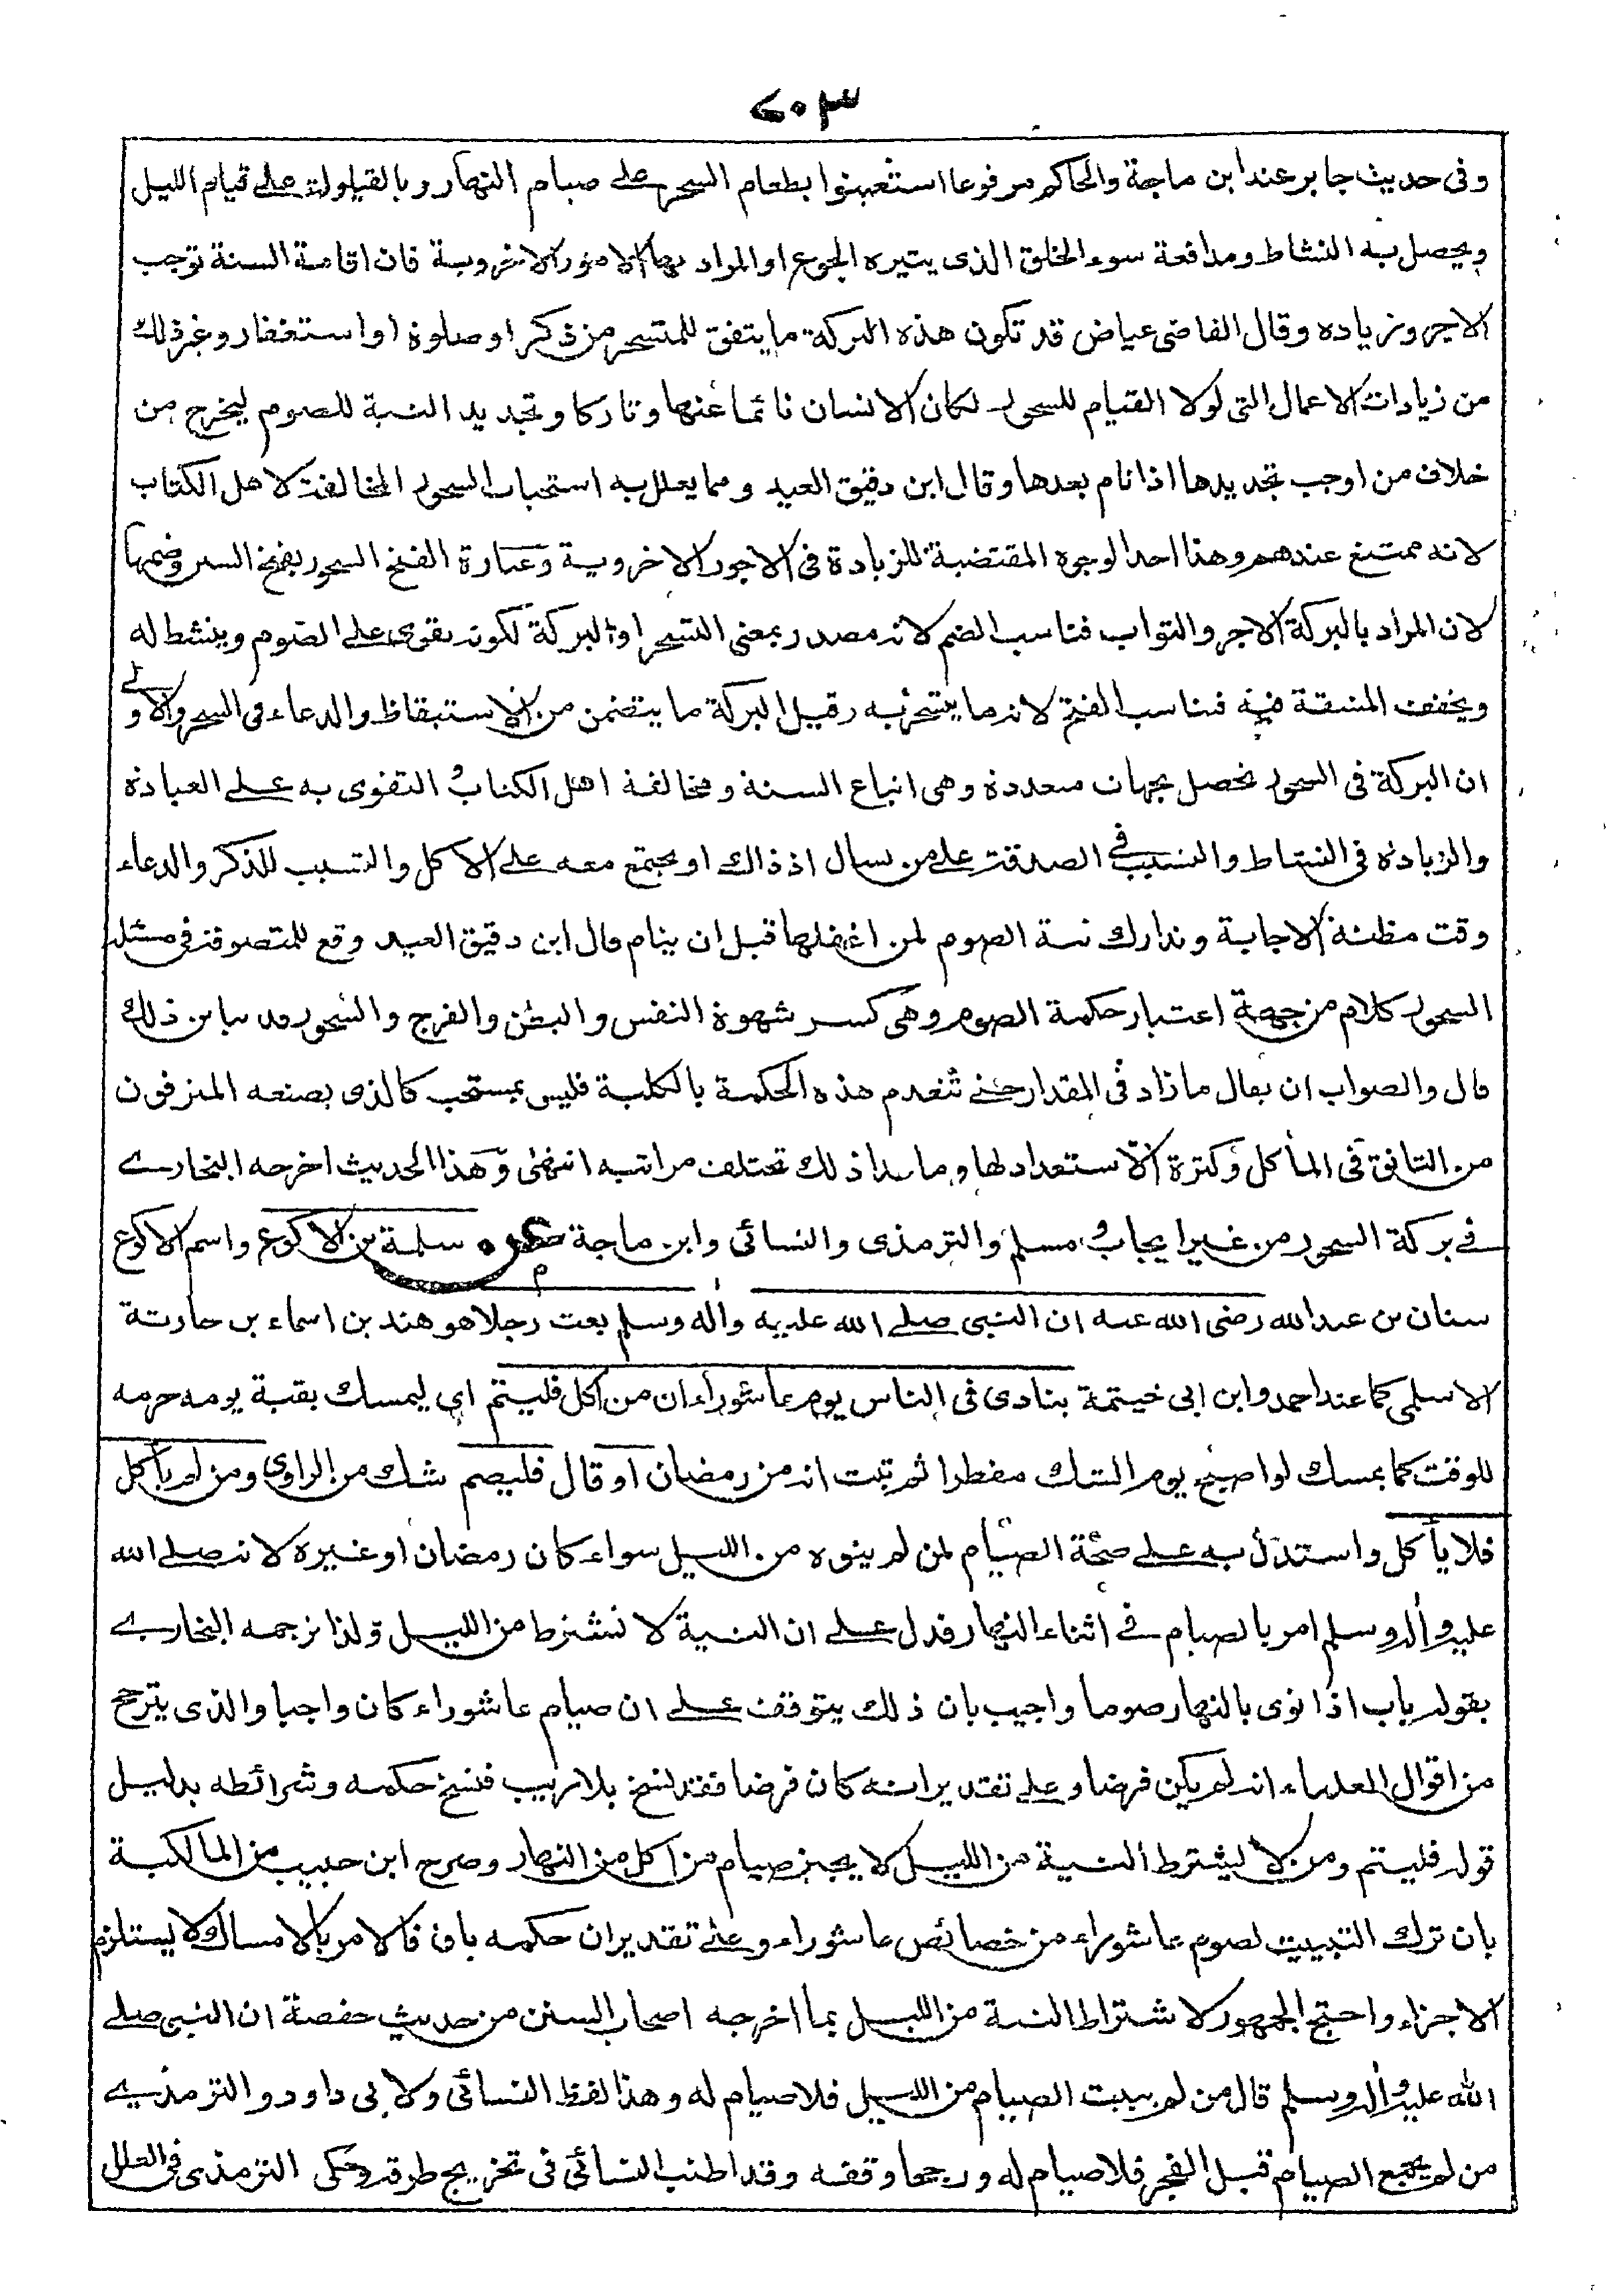 ٢٠٣
وفى حديث جابر عند ابن ماجة والحاكم مرفوعا استعينوا بطعام السحر على صيام النهار وبالقيلولة على قيام الليل
ويحصل به النشاط ومدافعة سوء الخلق الذى يثيره الجوع او المراد بها الامور الاخروية فان اقامة السنة توجب
الاجر وزياده وقال القاضى عياض قد تكون هذه البركة ما يتفق للمتسحر من ذكر او صلوة او استغفار وغير ذلك
من زيادات الاعمال التى لولا القيام للسحور لكان الانسان نائما عنها وتاركا وتجديد النية للصوم ليخرج من
خلاف من اوجب تجديدها اذا نام بعدها وقال ابن دقيق العيد ومما يعلل به استحباب السحور المخالفة لاهل الكتاب
لانه ممتنع عندهم وهذا احد الوجوه المقتضية للزيادة فى الاجور الاخروية وعبارة الفتح السحور بفتح السين وضمها
لان المراد بالبركة الاجر والثواب فناسب الضم لانه مصدر بمعنى التسحر او البركة لكونه يقوى على الصوم وينشط له
ويخفف المشقة فيه فناسب الفتح لانه ما يتسحر به وقيل البركة ما يتضمن من الاستيقاظ والدعاء فى السحر والاولى
ان البركة فى السحور تحصل بجهات متعددة وهى اتباع السنة ومخالفة اهل الكتاب و التقوى به على العبادة
والزيادة فى النشاط والتسبب فى الصدقة على من يسال اذ ذاك او يجتمع معه على الاكل والتسبب للذكر والدعاء
وقت مظنة الاجابة وتدارك نية الصوم لمن اغفلها قبل ان ينام قال ابن دقيق العيد وقع للمتصوفة فى مسئلة
السحور كلام من جهة اعتبار حكمة الصوم وهى كسر شهوة النفس والبطن والفرج والسحور قد يباين ذلك
قال والصواب ان يقال ما زاد فى المقدار حتى تنعدم هذه الحكمة بالكلية فليس بمستحب كالذى يصنعه المترفون
من التانق فى المأكل وكثرة الاستعداد لها وما عدا ذلك تختلف مراتبه انتهى وهذا الحديث اخرجه البخارى
فى بركة السحور من غير ايجاب و مسلم والترمذى والنسائى وابن ماجة عن سلمة بن الاكوع واسم الاكوع
سنان بن عبد الله رضى الله عنه ان النبى صلى الله عليه واله وسلم بعث رجلا هو هند بن اسماء بن حارثة
الاسلمى كما عند احمد وابن ابى خيثمة ينادى فى الناس يوم عاشوراء ان من اكل فليتم اى ليمسك بقية يومه حرمة
للوقت كما يمسك لو اصبح يوم الشك مفطرا ثم ثبت انه من رمضان او قال فليصم شك من الراوى ومن لم يأكل
فلا يأكل واستدل به على صحة الصيام لمن لم ينوه من الليل سواء كان رمضان او غيره لانه صلى الله
عليه واله وسلم امر بالصيام فى اثناء النهار فدل على ان النية لا تشترط من الليل ولذا ترجمه البخارى
بقوله باب اذا نوى بالنهار صوما واجيب بان ذلك يتوقف على ان صيام عاشوراء كان واجبا والذى يترجح
من اقوال العلماء انه لم يكن فرضا وعلى تقدير انه كان فرضا فقد نسخ بلا ريب فنسخ حكمه وشرائطه بدليل
قوله فليتم ومن لا يشترط النية من الليل لا يجيز صيام من اكل من النهار وصرح ابن حبيب من المالكية
بان ترك التبييت لصوم عاشوراء من خصائص عاشوراء وعلى تقدير ان حكمه باق فالامر بالامساك لا يستلزم
الاجزاء واحتج الجمهور لاشتراط النية من الليل بما اخرجه اصحاب السنن من حديث حفصة ان النبى صلى
الله عليه واله وسلم قال من لم يبيت الصيام من الليل فلا صيام له وهذا لفظ النسائى ولابى داود والترمذى
من لم يجمع الصيام قبل الفجر فلا صيام له ورجحا وقفه وقد اطنب النسائى فى تخريج طرقه وحكى الترمذى فى العلل